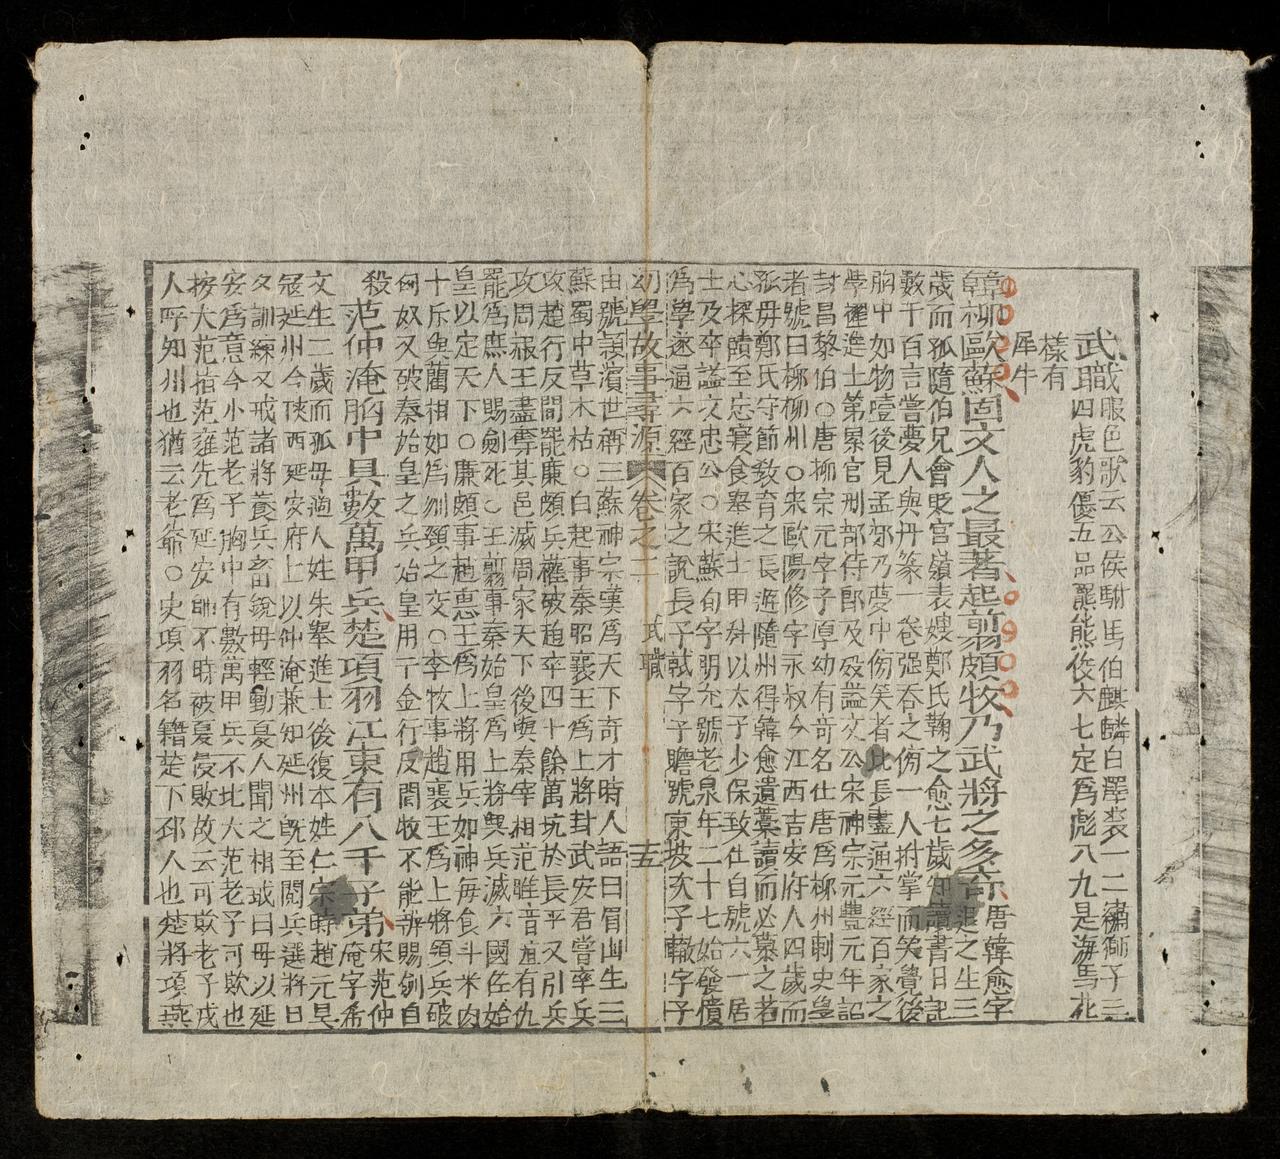 武職服色歌云公侯駙馬伯麒麟白澤裘一二繡獅子三
四虎豹優五品羆熊俊六七定爲彪八九是海馬花
樣有
犀牛
韓柳歐蘇固文人之最著起翦頗牧乃武將之多奇唐韓愈字
退之生三
歲而孤隨伯兄會貶官嶺表嫂鄭氏鞠之愈七歲知讀書日記
數千百言嘗夢人與丹篆一卷强吞之傍一人拊掌而笑覺後
胸中如物壹後見孟郊乃夢中傍笑者比長盡通六經百家之
學擢進士第累官刑部侍郎及殁謚文公宋神宗元豐元年詔
封昌黎伯○唐柳宗元字子厚幼有奇名仕唐爲柳州刺史
者號曰柳柳州○宋歐陽修字永叔今江西吉安府人四歲而
孤母鄭氏守節敎育之長遊隨州得韓愈遺藁讀而必慕之若
心探賾至忘寢食舉進士甲科以太子少保致仕自號六一居
士及卒謚文忠公○宋蘇洵字明允號老泉年二十七始發憤
爲學遂通六經百家之說長子軾字子瞻號東坡次子轍字子
幼學故事尋源 卷之二 武職 十五
由號潁濱世稱三蘇神宗嘆爲天下奇才時人語曰眉山生三
蘇蜀中草木枯○白起事秦昭襄王爲上將封武安君嘗率兵
攻趙行反間罷廉頗兵權破趙卒四十餘萬坑於長平又引兵
攻周赧王盡奪其邑滅周家天下後與秦宰相范雎音疽有仇
罷爲庶人賜劍死○王翦事秦始皇爲上將與兵滅六國佐始
皇以定天下○廉頗事趙惠王爲上將用兵如神每食斗米肉
十斤與藺相如爲刎頸之交○李牧事趙襄王爲上將領兵破
匈奴又破秦始皇之兵始皇用千金行反間牧不能辨賜劍自
殺
范仲淹胸中具數萬甲兵楚項羽江東有八千子弟宋范仲
淹字希
文生二歲而孤母適人姓朱舉進士後復本姓仁宗時趙元昊
寇延州今陝西延安府上以仲淹兼知延州旣至閱兵選將日
夕訓練又戒諸將養兵畜銳毋輕動夏人聞之相戒曰毋以延
安爲意今小范老子胸中有數萬甲兵不比大范老子可欺也
按大范指范雍先爲延安帥不時被夏侵敗故云可欺老子戎
人呼知州也猶云老爺○史項羽名籍楚下邳人也楚將項燕